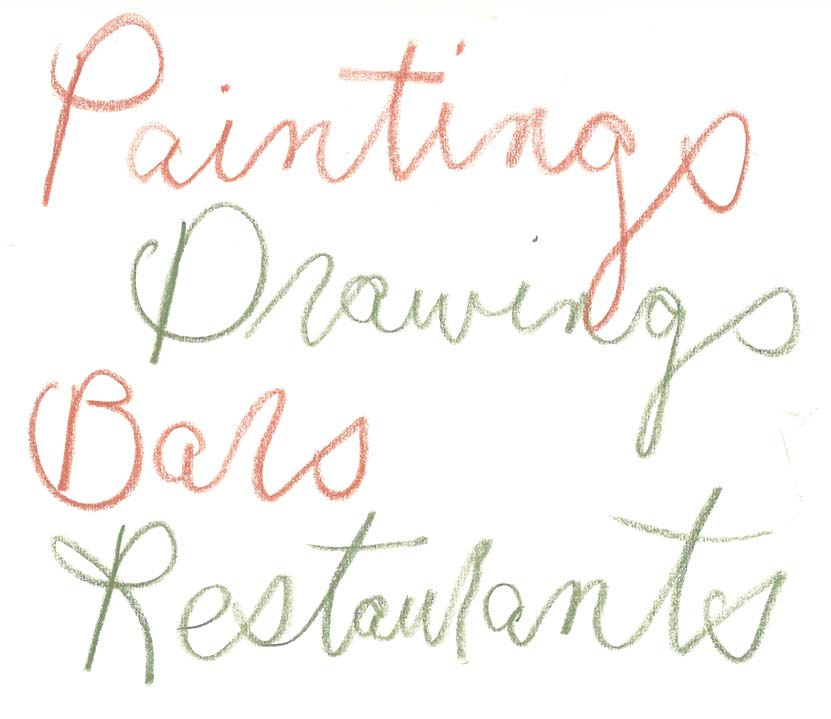 Paintings
Drawings
Bars
Restaurants